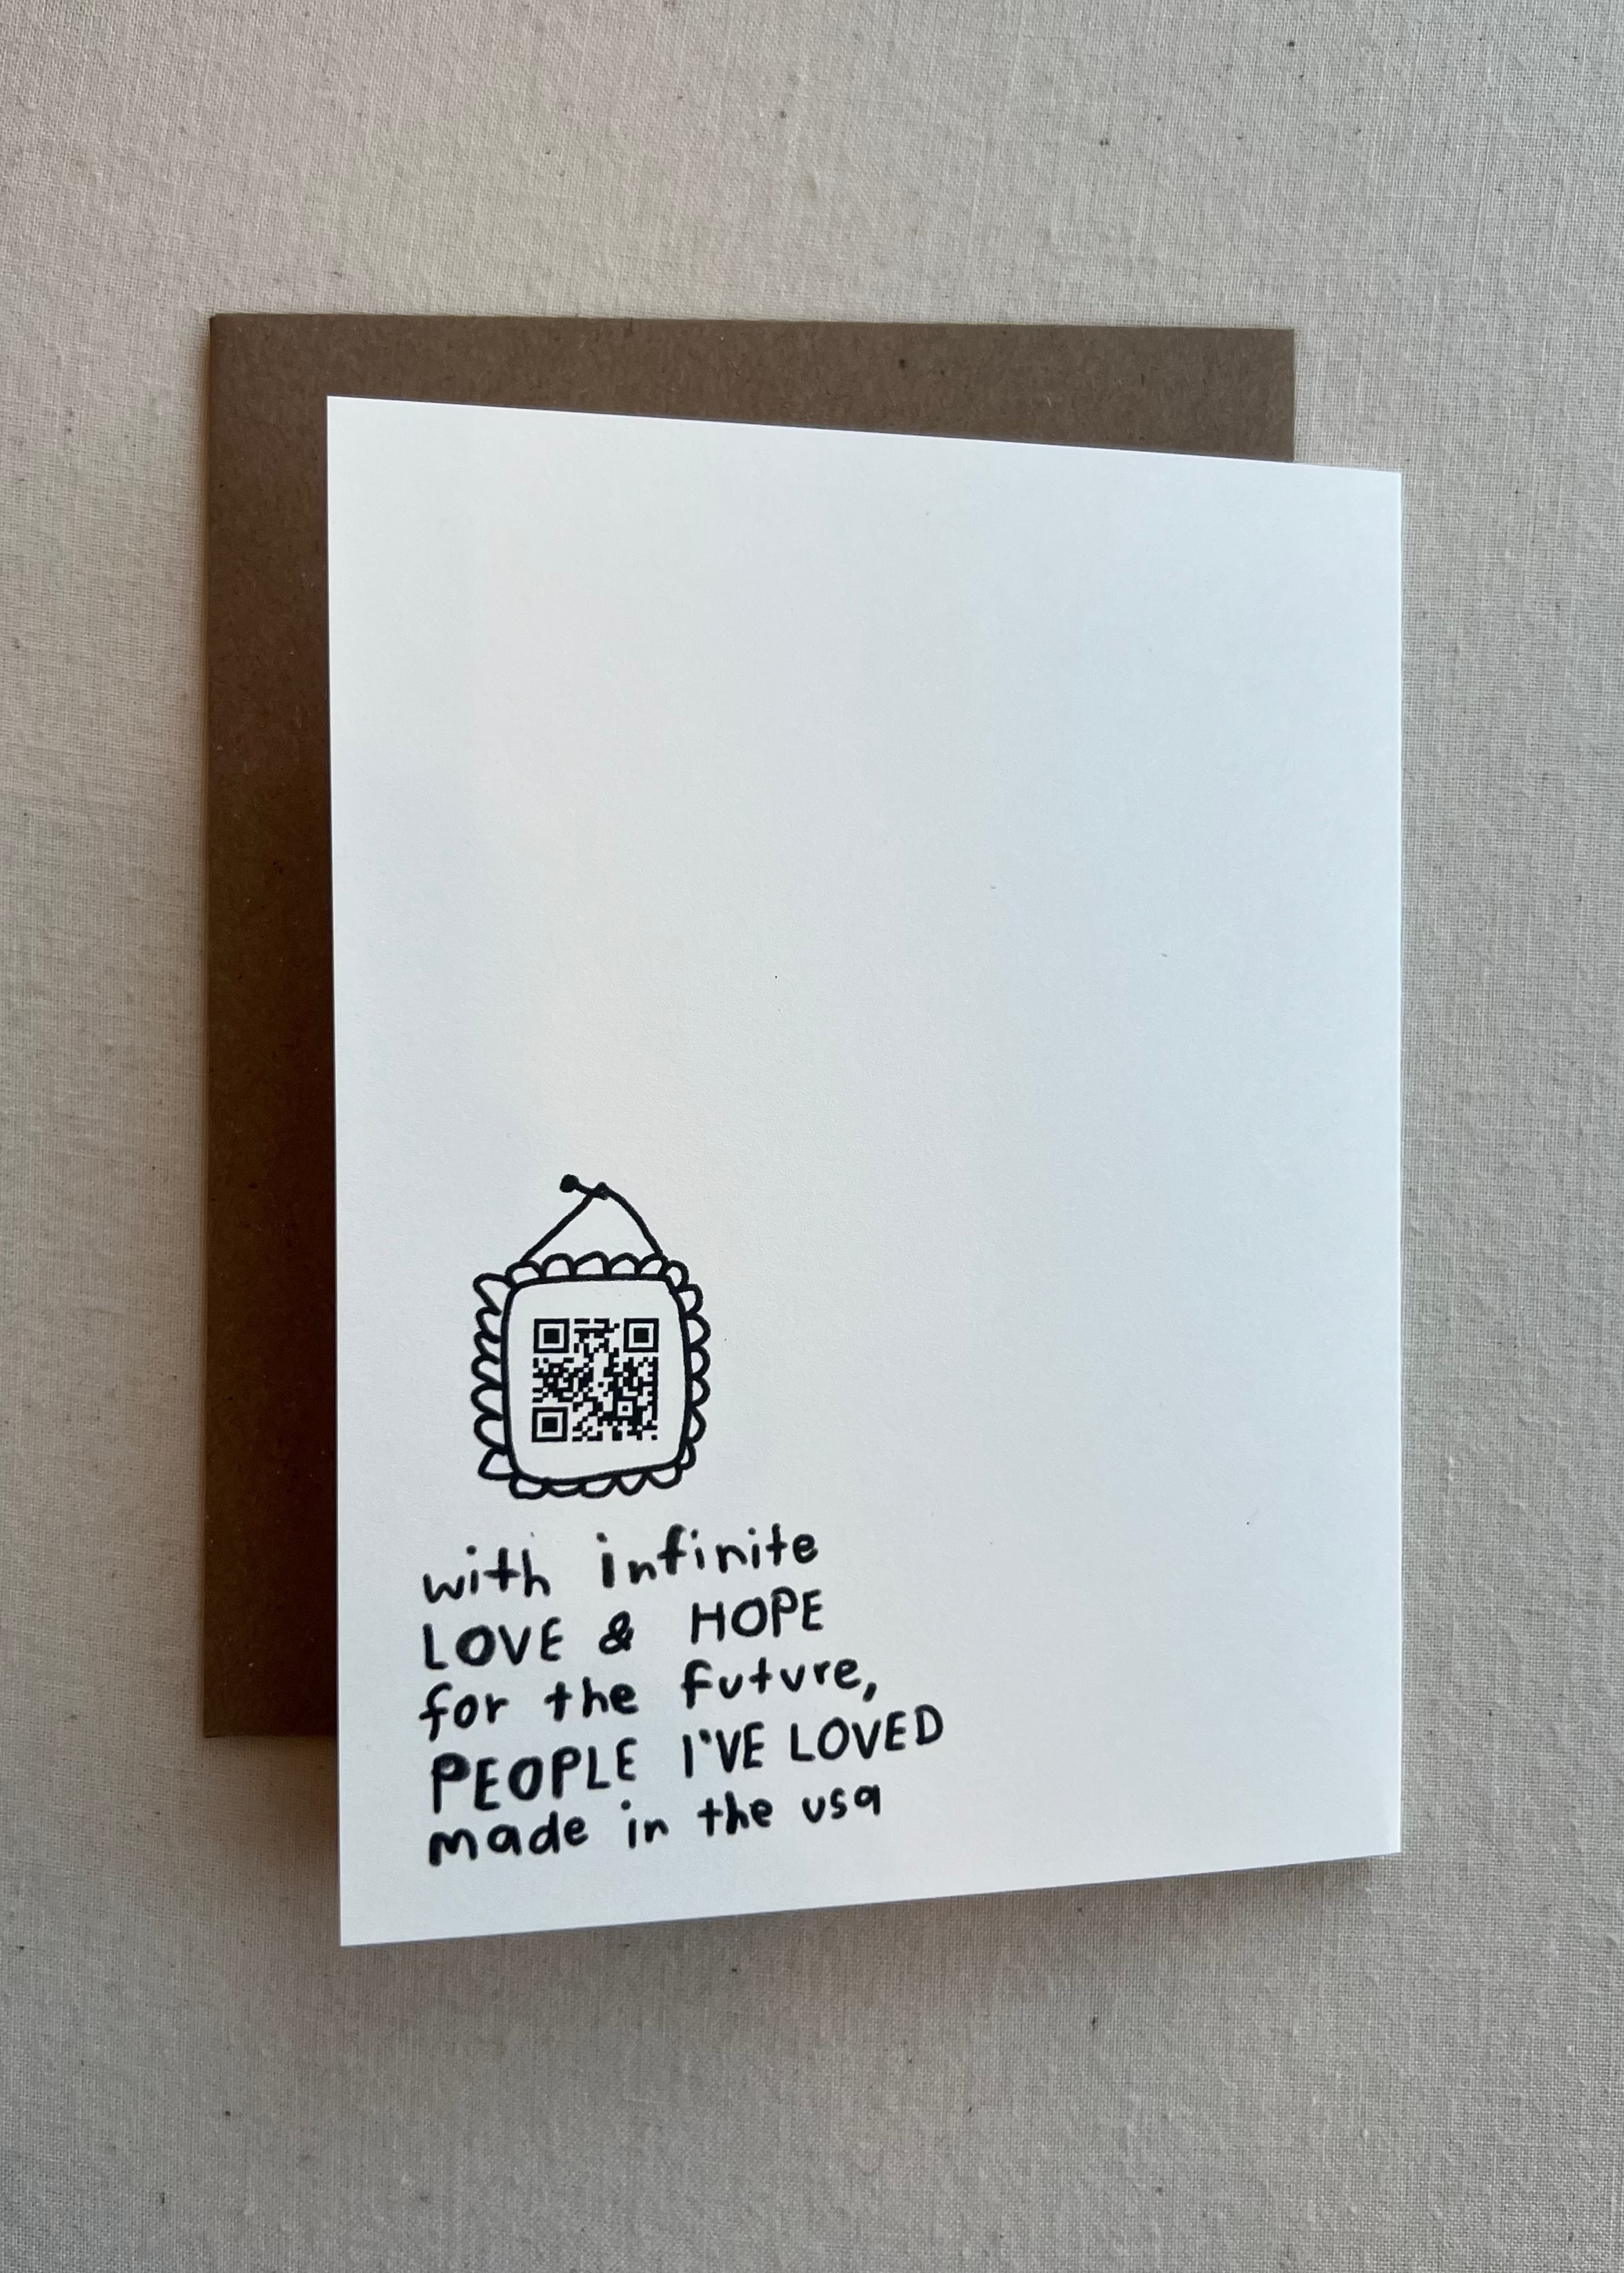 with infinite
LOVE & HOPE
for the future,
PEOPLE I'VE LOVED
made in the usa